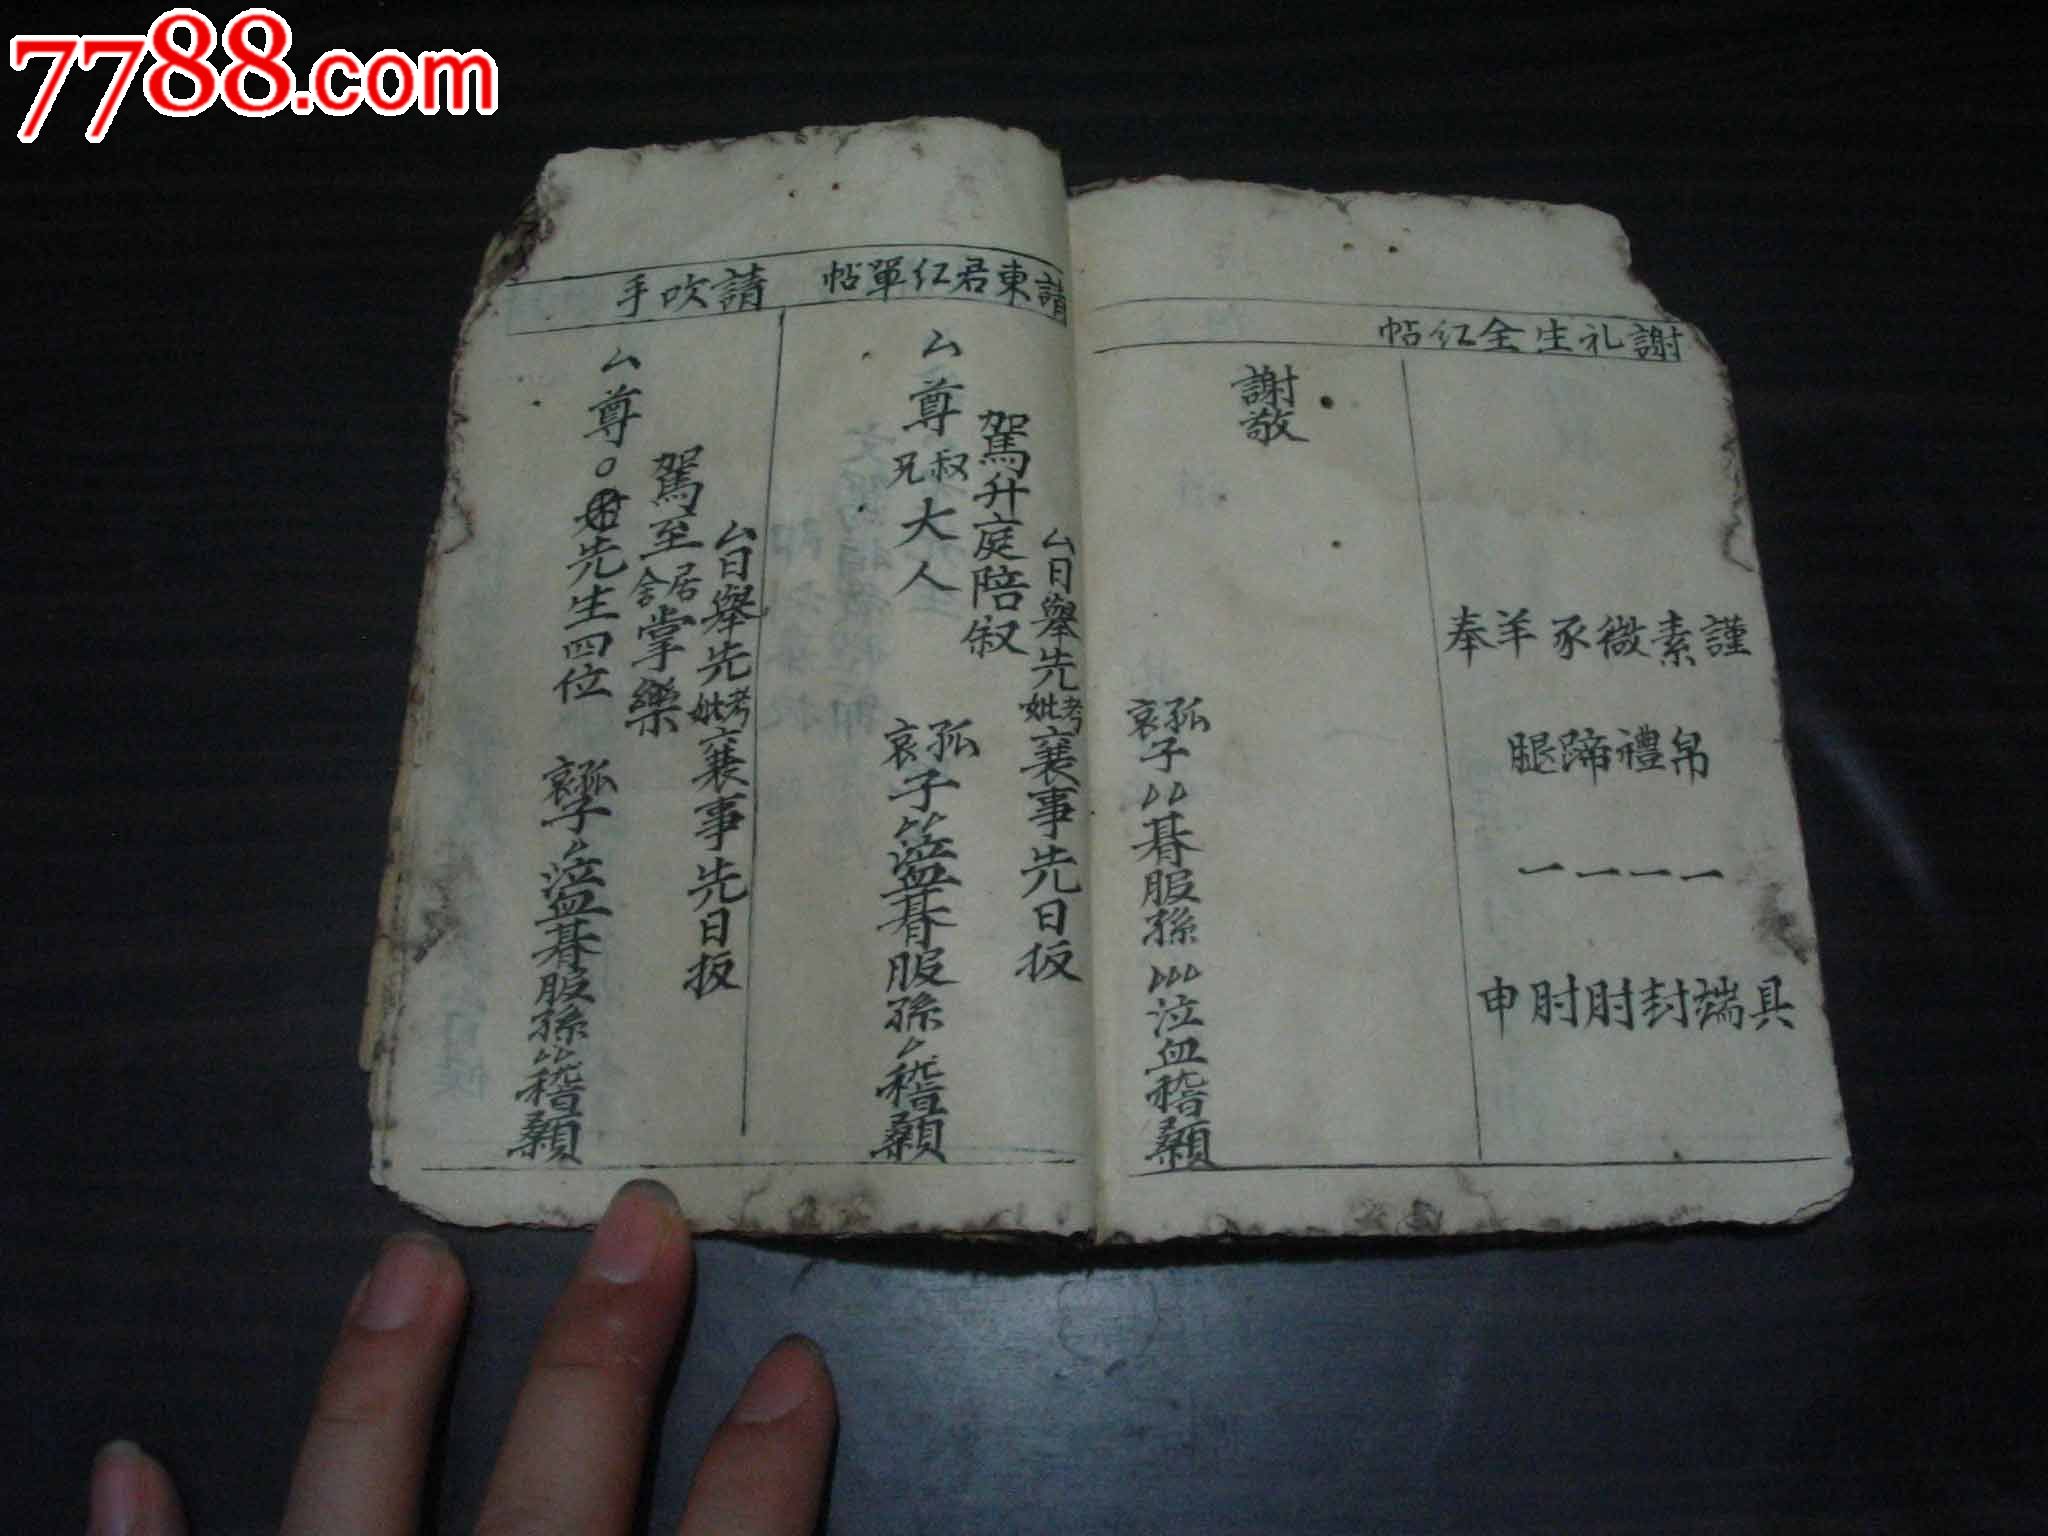 7788.com
謝礼生全紅帖
謹素微豕羊奉
帛禮蹄腿
一一一一
具端封肘肘申
謝敬
孤哀子朞服孫泣血稽顙
請東君紅單帖
厶日舉先考妣襄事先日扳
駕升庭陪叙
厶尊叔兄大人
孤哀子泣血朞服孫稽顙
請吹手
厶日舉先考妣襄事先日扳
駕至居舍掌樂
厶尊〇先生四位
孤哀子泣血朞服孫稽顙